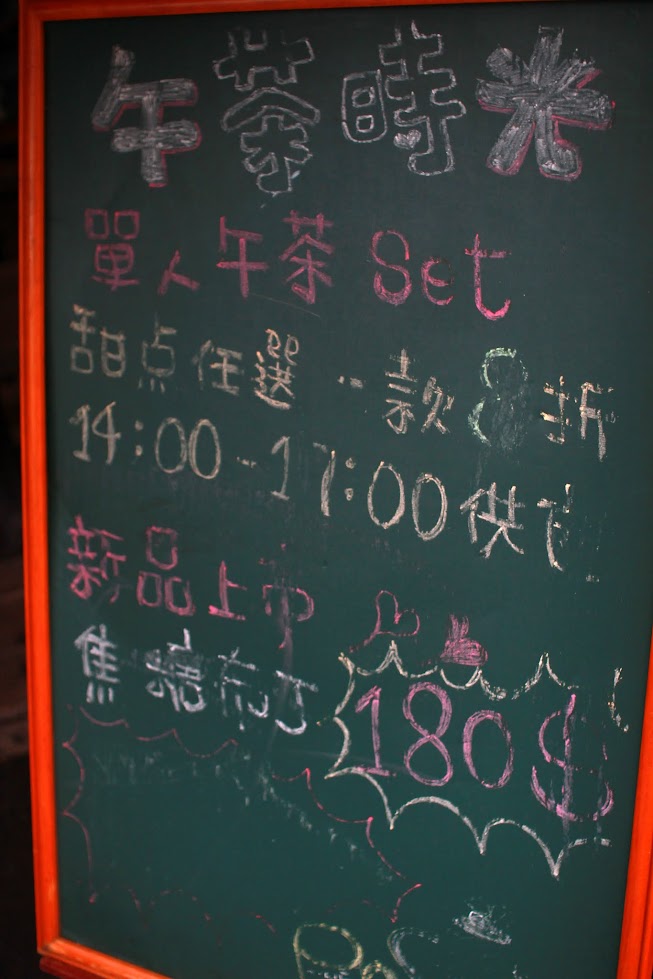 午茶時光
單人午茶 Set
甜点任選一款8折
14:00-17:00供
新品上市
焦糖布丁 180$